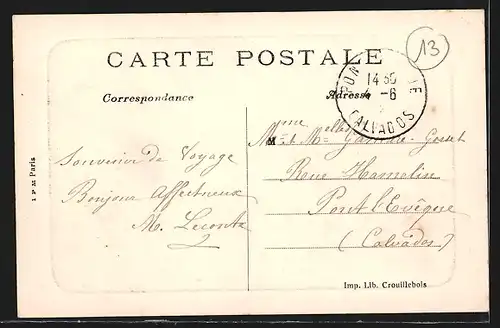 13
CARTE POSTALE
14 50
4 -6
CALVADOS
Correspondance
Adresse
Souvenir de Voyage
Bonjour Affectueux
M. Lecomte
Mme et Melles
Rue Hamelin
Pont l'Evêque
(Calvados)
I P M Paris
Imp. Lib. Crouillebois